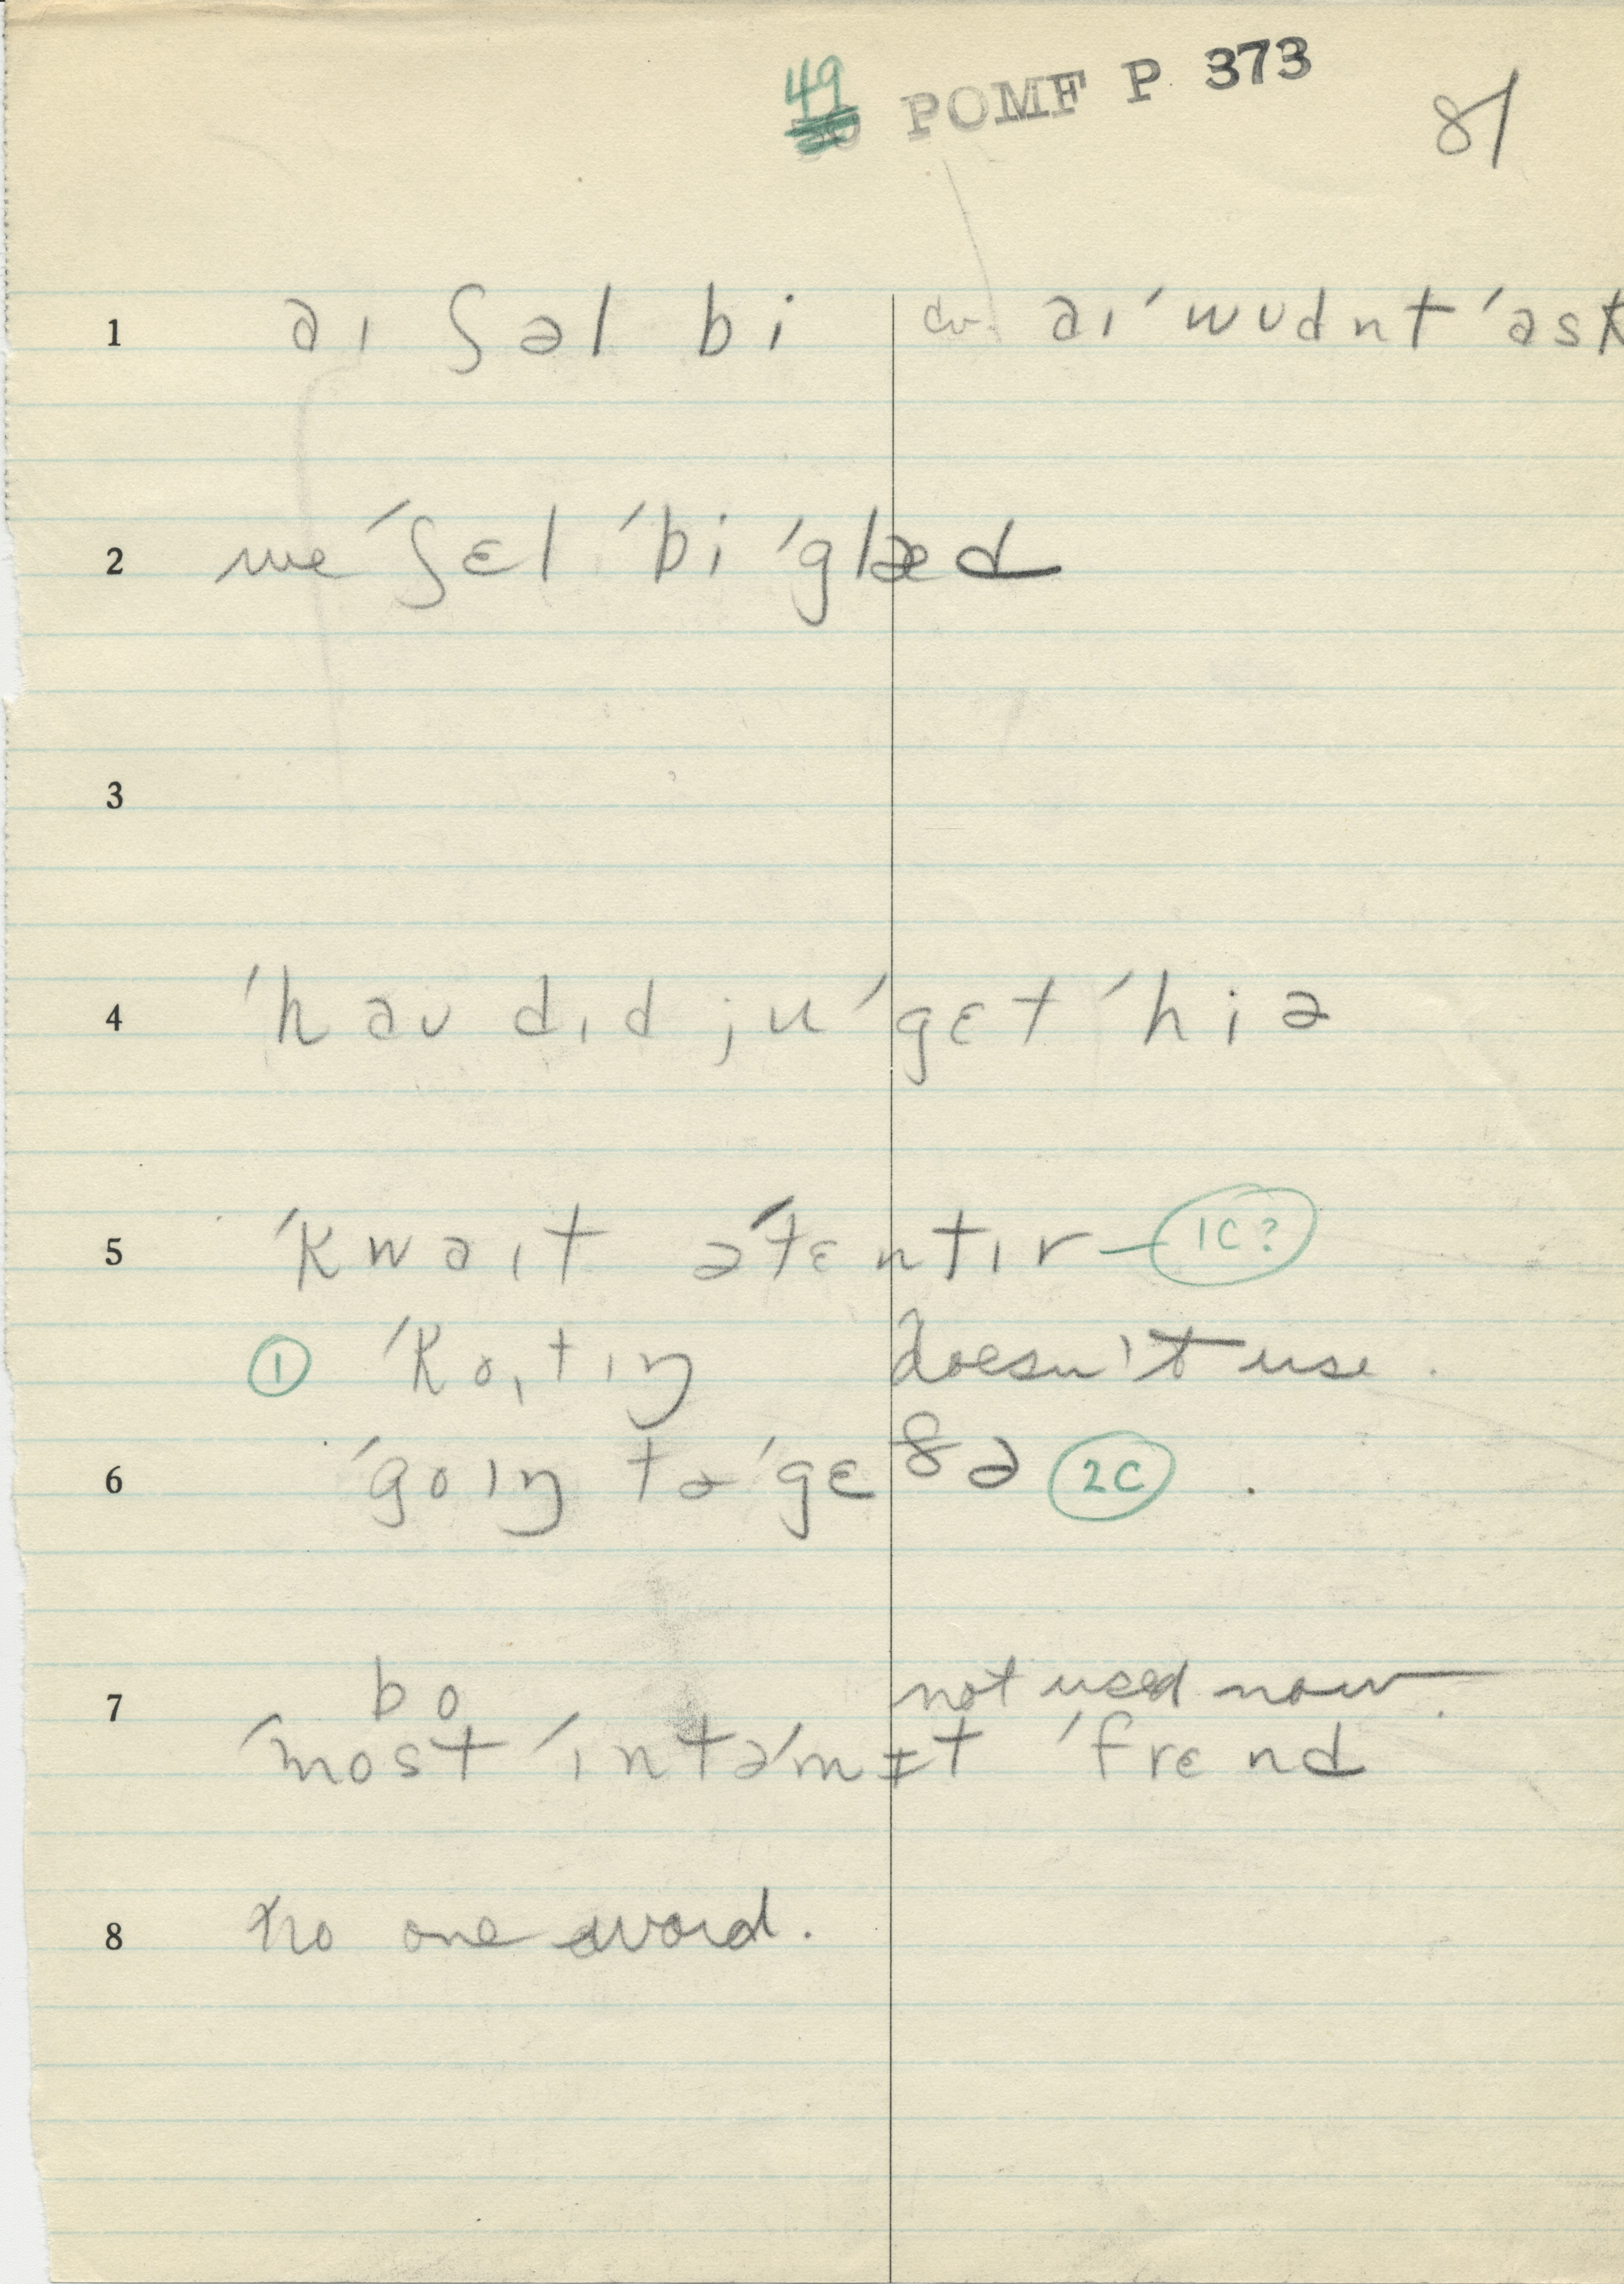 49 POMF P 373
81
1 aɪ ʃəl bi cv. aɪ ˈwʊdnt ˈask
2 we ˈʃɛl ˈbi ˈglæd
3
4 ˈhaʊ dɪd ju ˈgɛt ˈhiə
5 ˈkwaɪt əˈtɛntɪv 1C?
① ˈkoɪtɪŋ doesn't use.
6 ˈgoɪŋ tə ˈgɛðə 2C
7 bo not used now.
ˈmost ˈɪntəˈmɪt ˈfrɛnd
8 no one word.